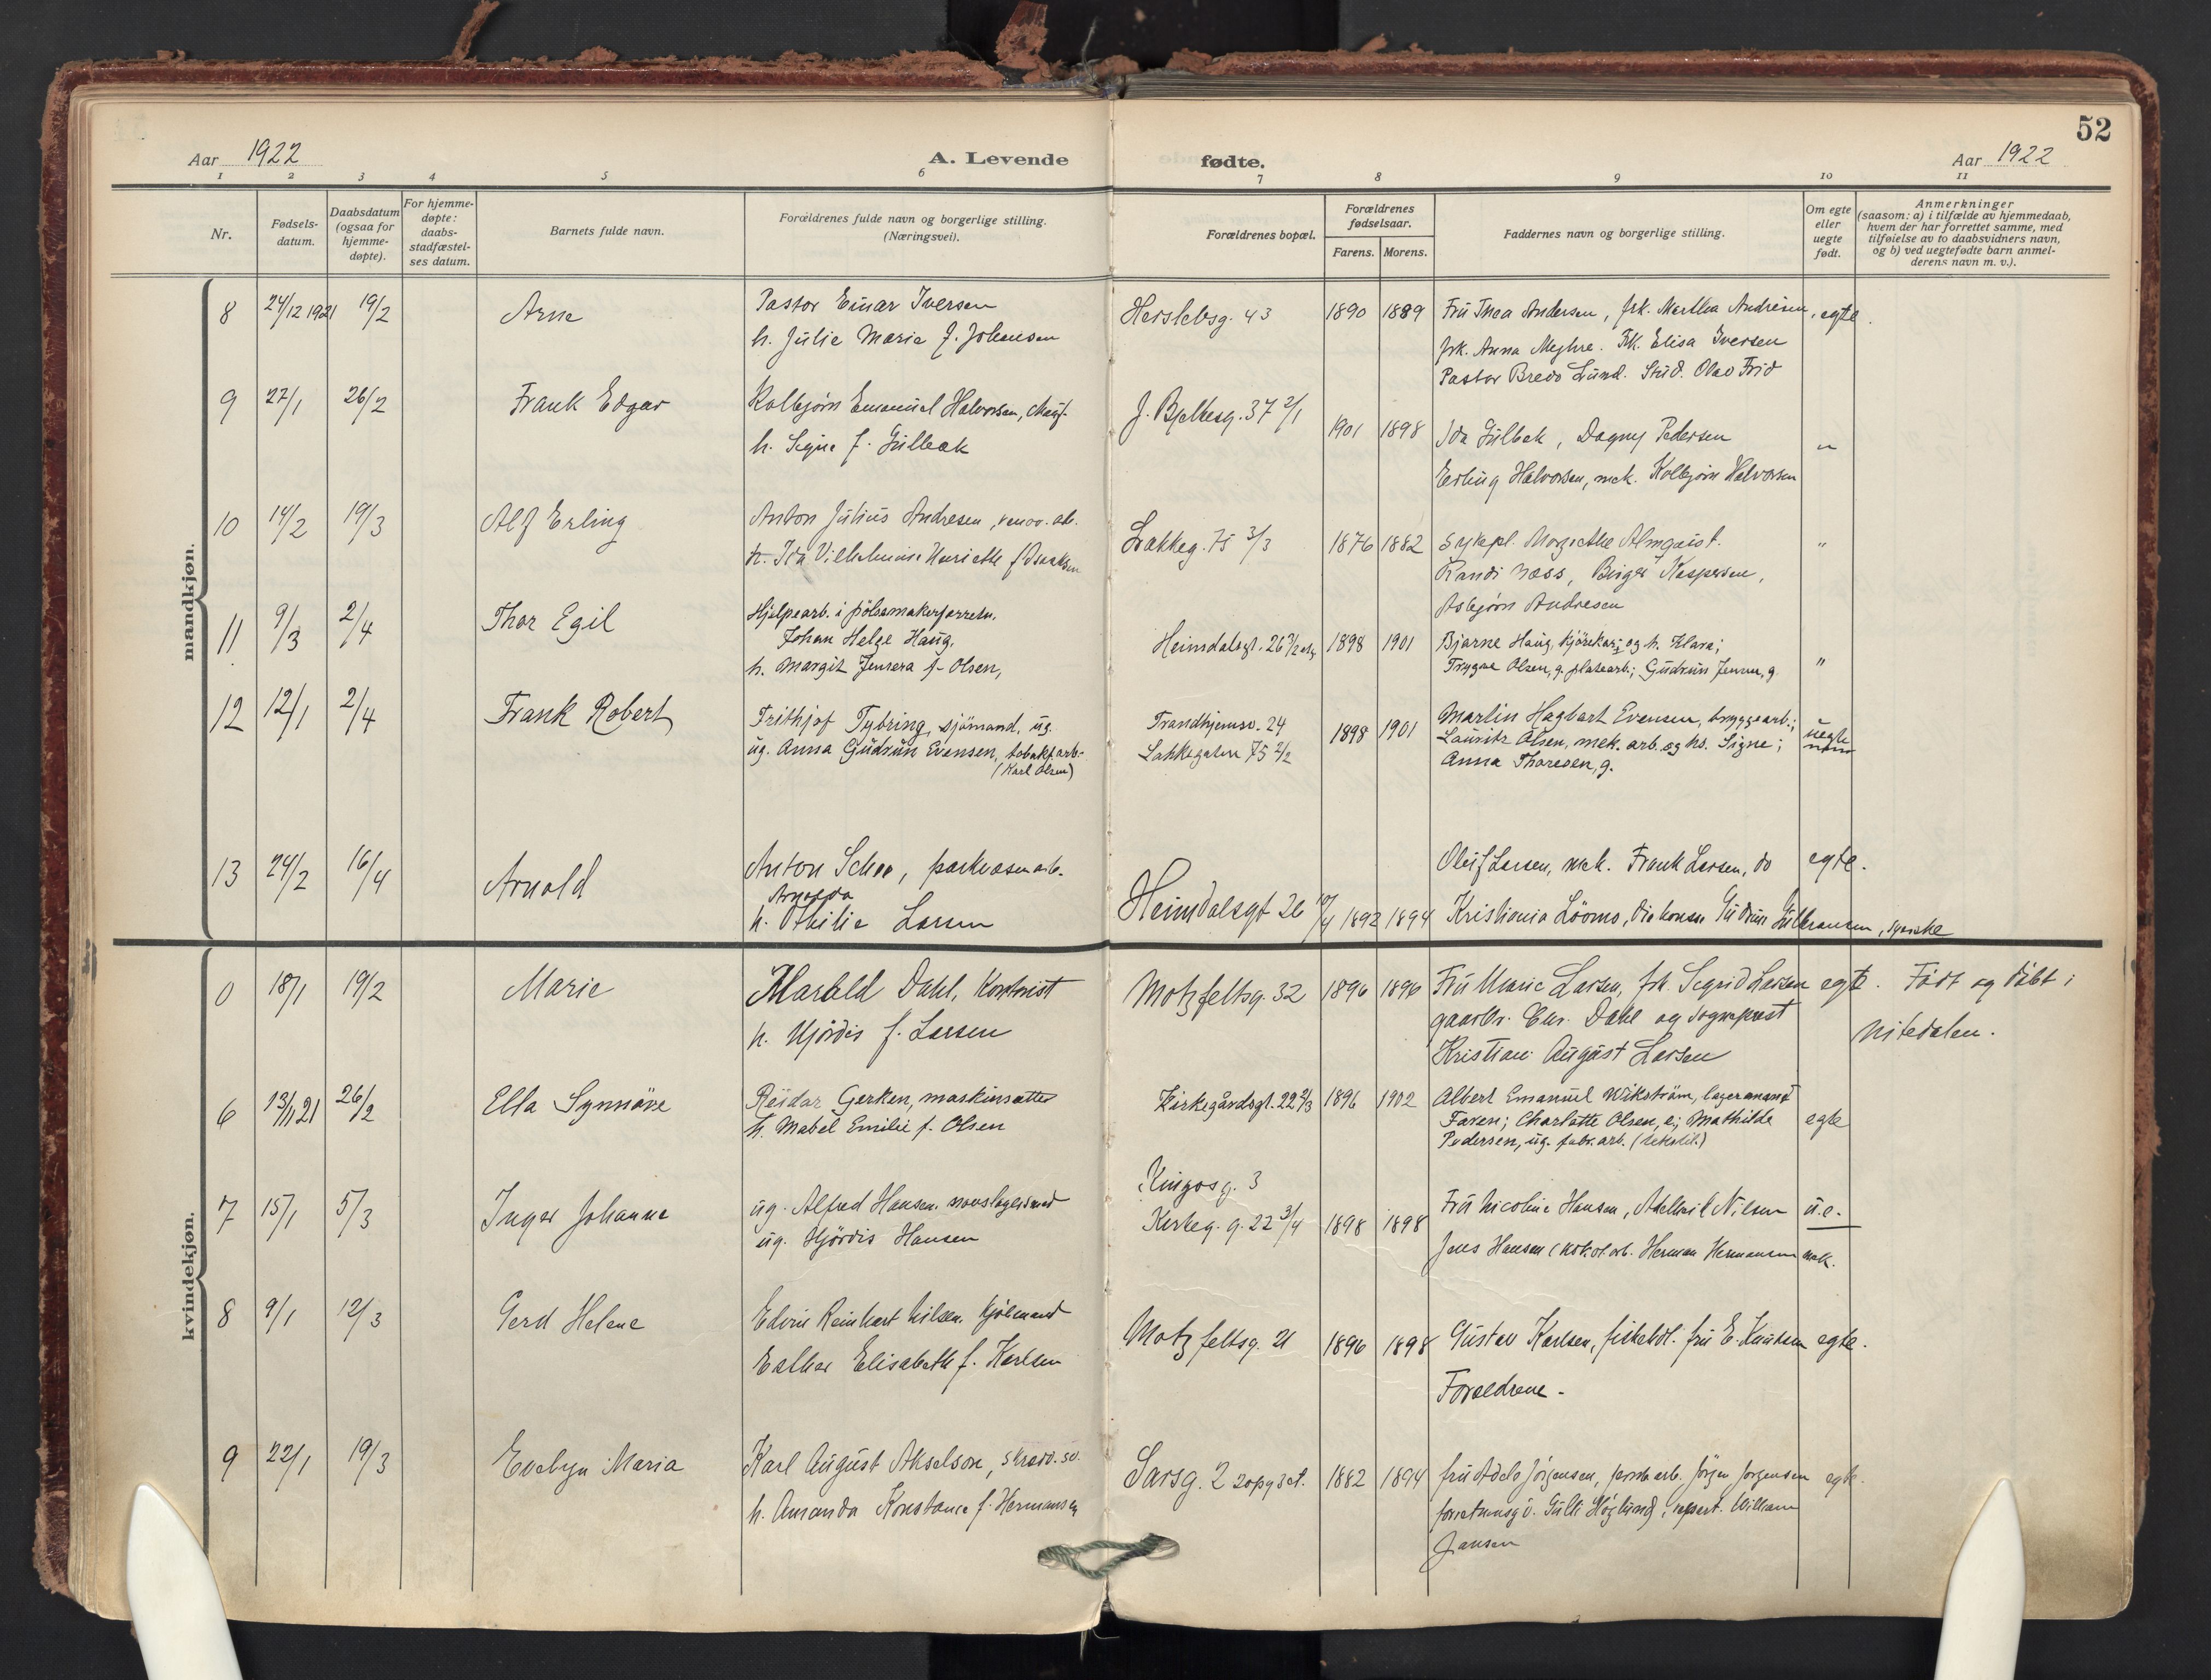 52
Aar 1922
A. Levende
fødte.
Aar 1922
1 2 3 4 5 6 7 8 9 10 11
Nr.
Fødsels-
datum.
Daabsdatum
(ogsaa for
hjemme-
døpte).
For hjemme-
døpte:
daabs-
stadfæstel-
ses datum.
Barnets fulde navn.
Forældrenes fulde navn og borgerlige stilling.
(Næringsvei).
Forældrenes bopæl.
Forældrenes
fødselsaar.
Farens. Morens.
Faddernes navn og borgerlige stilling.
Om egte
eller
uegte
født.
Anmerkninger
(saasom: a) i tilfælde av hjemmedaab,
hvem der har forrettet samme, med
tilføielse av to daabsvidners navn,
og b) ved uegtefødte barn anmel-
derens navn m. v.).
mandkjøn.
8 24/12 1921 19/2 Arne Pastor Einar Iversen Herslebsg. 43 1890 1889 Fru Thea Andersen, frk. Martha Andresen, egte.
h. Julie Marie f. Johansen frk. Anna Meghre. Frk. Elisa Iversen
Pastor Bredo Lund. Stud. Olav Frid
9 27/1 26/2 Frank Edgar Kolbjørn Emanuel Halvorsen, J. Bjelkesg. 37 2/1 1901 1898 Ida Gulbek, Dagny Pedersen "
h. Signe f. Gulbæk Erling Halvorsen, mek. Kolbjørn Halvorsen
10 14/2 19/3 Alf Erling Anton Julius Andresen, renov. arb. Lakkeg. 75 3/3 1876 1882 sykepl. Margrethe Almquist. "
h. Ida Vilhelmine Henriette f Isaksen Randi Næss, Birger Kaspersen,
Asbjørn Andresen
11 9/3 2/4 Thor Egil Hjelpearb. i pölsemakerforretn. Heimdalsgt. 26 3/2 etg 1898 1901 Bjarne Haug, kjörekar; og h. Klara; "
Johan Helge Haug, Trygve Olsen, g. platearb.; Gudrun Jensen, g.
h. Margit Jensera f. Olsen,
12 12/1 2/4 Frank Robert Frithjof Tybring, sjömand, ug. Trondhjemsv. 24 1898 1901 Martin Hagbart Evensen, bryggearb.; uegte
ug. Anna Gudrun Evensen, tobakkf.arb.- Lakkegaten 75 2/2 Lauritz Olsen, mek. arb. og hs. Signe;
(Karl Olsen) Anna Thoresen, g.
13 24/2 16/4 Arnold Anton Schee, parkvæsenarb. Heimdalsgt 26 1892 1894 Oleif Larsen, mek. Frank Larsen, do egte.
Arnolda
h. Othilie Larsen Kristiania Lööms, diakonisse Gudrun Gulbransen, syerske
kvindekjøn.
0 18/1 19/2 Marie Harald Dahl, Kontorist Motzfeltsg. 32 1896 1896 Fru Marie Larsen, frk. Sigrid Larsen egte. Født og döbt i
h. Hjördis f. Larsen gaardbr. Chr. Dahl og Sogneprest Nitedalen.
Kristian August Larsen
6 13/11 21 26/2 Ella Synnöve Reidar Gerken, maskinsetter Kirkegårdsgt. 22 2/3 1896 1902 Albert Emanuel Wikström, lagermand
h. Mabel Emilie f. Olsen Faren; Charlotte Olsen, e; Mathilde egte
Pedersen, ug. fabr. arb. (tekstil.)
7 15/1 5/3 Inger Johanne ug. Alfred Hansen, Kingosg. 3 1898 1898 Fru Nicoline Hansen, Nilsen u.e.
ug. Hjördis Hansen Kirkeg. g. 22 3/4 Jens Hansen Herman Hermansen mek.
8 9/1 12/3 Gerd Helene Edvin Reinhart Nilsen, Motzfeltsg. 21 1896 1898 Gustav Karlsen, fiskehdl. fru E. Knutsen egte.
Esther Elisabeth f. Karlsen Foreldrene.
9 22/1 19/3 Evelyn Maria Karl August Akselson, skred. sv. Sarsg. 2 2 opg 3 et. 1882 1894 fru Adele Jörgensen, Jörgen Jorgensen egte.
h. Amanda Konstance f. Hermansen Gulli Höglund, repart. William
Jansen